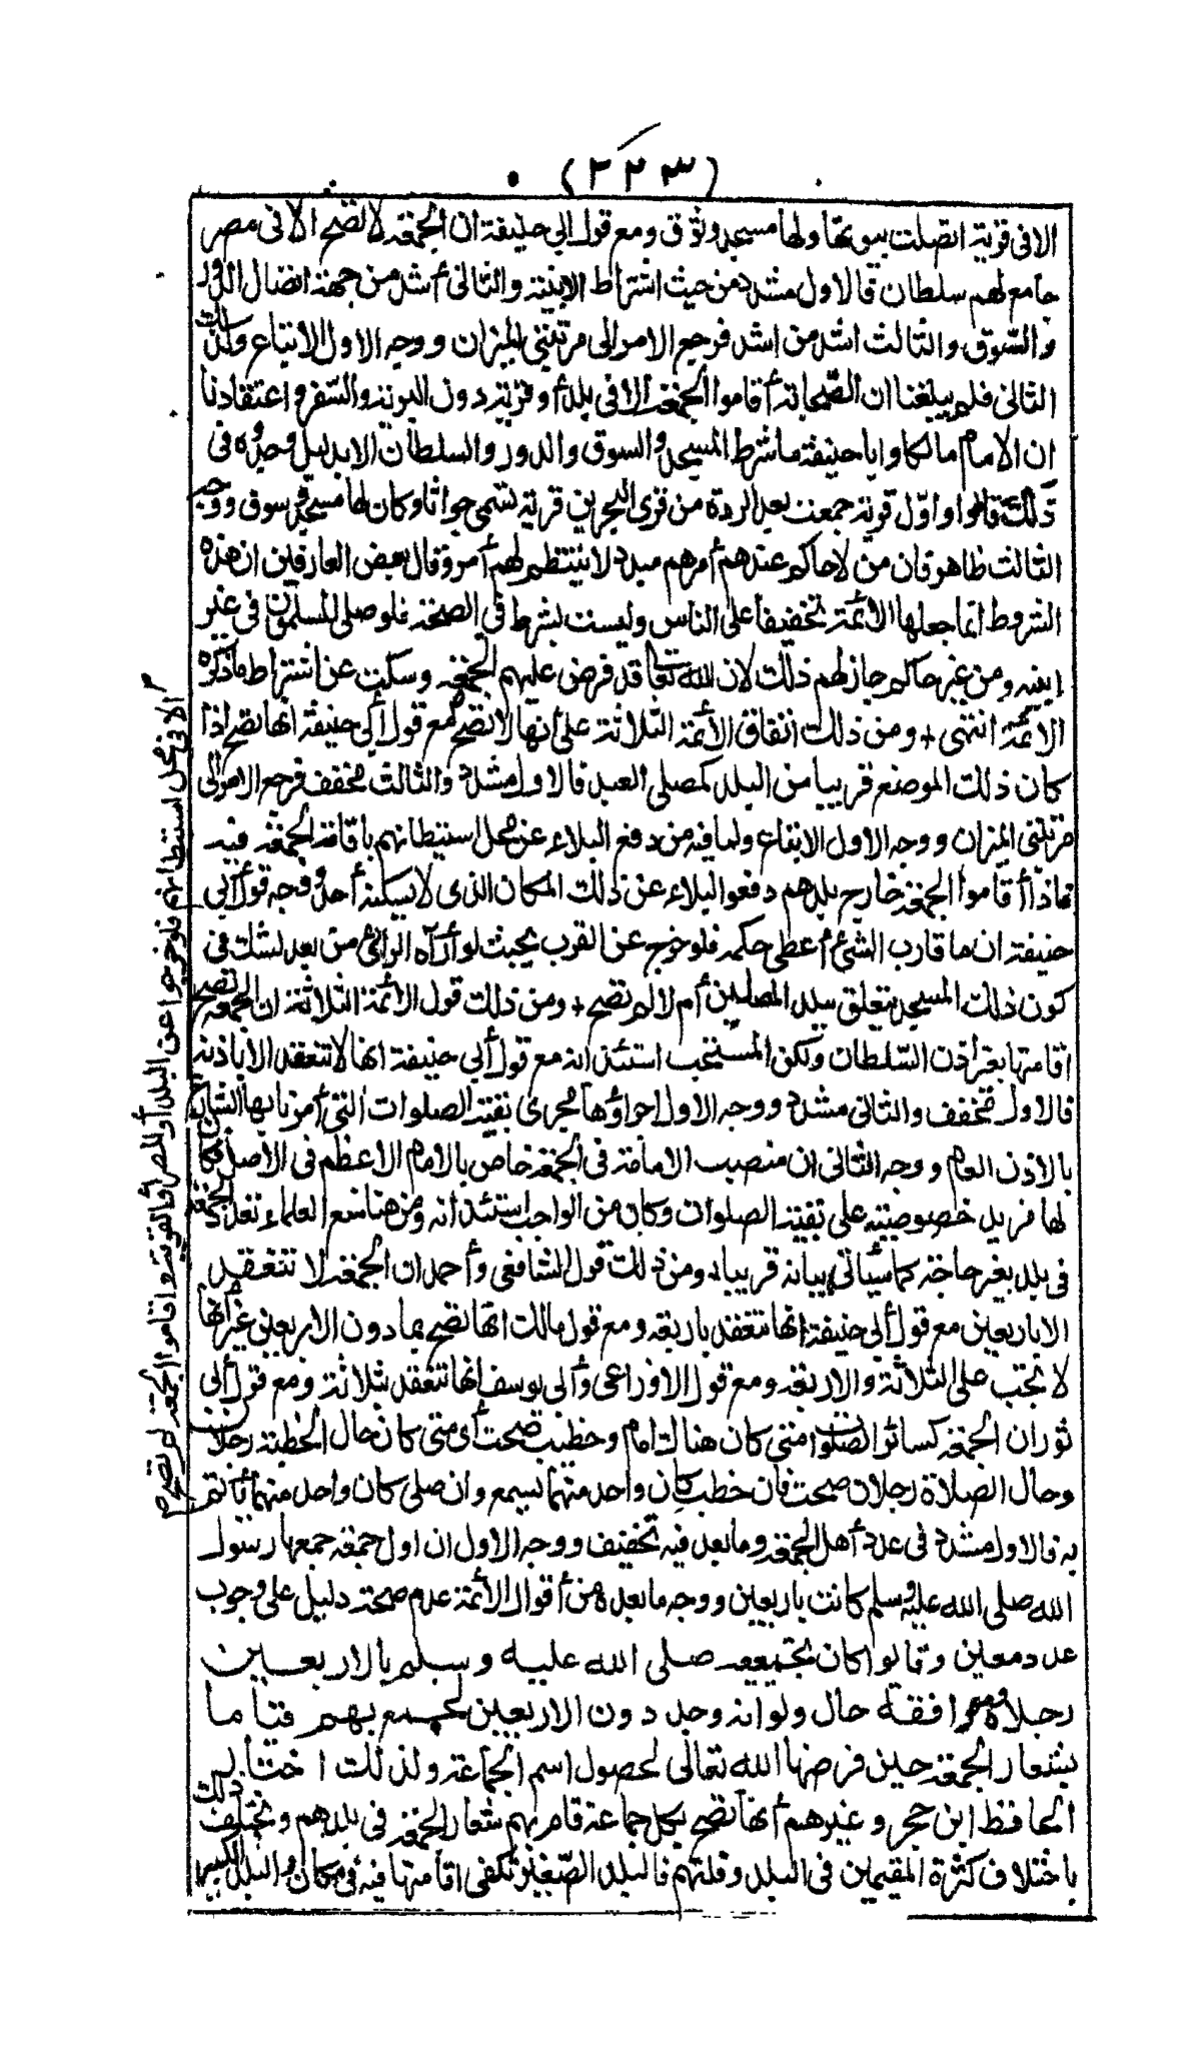 (٢٢٣)
الا فى قرية اتصلت بيوتها ولها مسجد وسوق ومع قول ابي حنيفة ان الجمعة لا تصح الا فى مصر
جامع لهم سلطان فالاول مشدد من حيث اشتراط الابنية والثانى أشد من جهة اتصال الدور
والسّوق والثالث اشد من اشد فرجع الامر الى مرتبتي الميزان ووجه الاول الاتباع وكذلك
الثانى فلم يبلغنا ان الصّحابة أقاموا الجمعة الا فى بلد أو قرية دون البرية والسّفر واعتقادنا
ان الامام مالكا وابا حنيفة ما شرط المسجد والسوق والدور والسلطان الا بدليل وجدوه فى
ذلك قالوا واوّل قرية جمعت بعد الردة من قرى البحرين قرية تسمى جواثا وكان لها مسجد وسوق ووجه
الثالث ظاهر فان من لا حاكم عندهم أمرهم مبدد لا ينتظم لهم أمر وقال بعض العارفين ان هذه
الشروط انما جعلها الأئمة تخفيفا على الناس وليست بشرط فى الصحة فلو صلى المسلمون فى غير
ابنية ومن غير حاكم جاز لهم ذلك لان الله تعالى قد فرض عليهم الجمعة وسكت عن اشتراط ما ذكره
الائمة انتهى + ومن ذلك اتفاق الأئمة الثلاثة على أنها لا تصح مع قول أبي حنيفة انها تصح اذا
كان ذلك الموضع قريبا من البلد كمصلى العيد فالاول مشدد والثالث مخفف فرجع الامر الى
مرتبتى الميزان ووجه الاول الاتباع ولما فيه من دفع البلاء عن محل استيطانهم باقامة الجمعة فيه
فاذا أقاموا الجمعة خارج بلدهم دفعوا البلاء عن ذلك المكان الذى لا يسكنه أحد ووجه قول أبي
حنيفة ان ما قارب الشئ أعطى حكمه فلو خرج عن القرب بحيث لو رآه الرائى من بعد لشك فى
كون ذلك المسجد يتعلق ببلد المصلين أم لا لم تصح + ومن ذلك قول الأئمة الثلاثة ان الجمعة تصح
اقامتها بغير اذن السّلطان ولكن المستحب استئذانه مع قول أبي حنيفة انها لا تنعقد الا باذنه
فالاول مخفف والثانى مشدد ووجه الاول اجراؤها مجرى بقية الصلوات التى أمرنا بها الشارع
بالاذن العام ووجه الثانى ان منصب الامامة فى الجمعة خاص بالامام الاعظم فى الاصل فكان
لها مزيد خصوصية على بقية الصلوات وكان من الواجب استئذانه ومن هنا منع العلماء تعدد الجمعة
فى بلد بغير حاجة كما سيأتى بيانه قريبا + ومن ذلك قول الشافعى وأحمد ان الجمعة لا تنعقد
الا باربعين مع قول أبي حنيفة انها تنعقد باربعة ومع قول مالك انها تصح بما دون الاربعين غير أنها
لا تجب على الثلاثة والاربعة ومع قول الاوزاعى وأبى يوسف انها تنعقد بثلاثة ومع قول أبى
ثور ان الجمعة كسائر الصلوات متى كان هناك امام وخطيب صحت أى متى كان حال الخطبة رجلان
وحال الصلاة رجلان صحت فان خطب كان واحد منهما يسمع وان صلى كان واحد منهما يأتم
به فالاول مشدد فى عدد أهل الجمعة وما بعد فيه تخفيف ووجه الاول ان اول جمعة جمعها رسول
الله صلى الله عليه وسلم كانت باربعين ووجه ما بعده من أقوال الأئمة عدم صحة دليل على وجوب
عدد معين وقالوا كان تجميعه صلى الله عليه وسلم بالاربعين
رجلا موافقة حال ولو انه وجد دون الاربعين لجمع بهم قياما
بشعار الجمعة حين فرضها الله تعالى لحصول اسم الجماعة ولذلك اختار
الحافظ ابن حجر وغيرهم أنها تصح بكل جماعة قام بهم شعار الجمعة فى بلدهم ويختلف ذلك
باختلاف كثرة المقيمين فى البلد وقلتهم فالبلد الصّغير تكفى اقامتها فيه فى مكان والبلد الكبير
الا فى محل استيطانهم فلو خرجوا عن البلد أو المصر أو القرية واقاموا الجمعة لم تصح